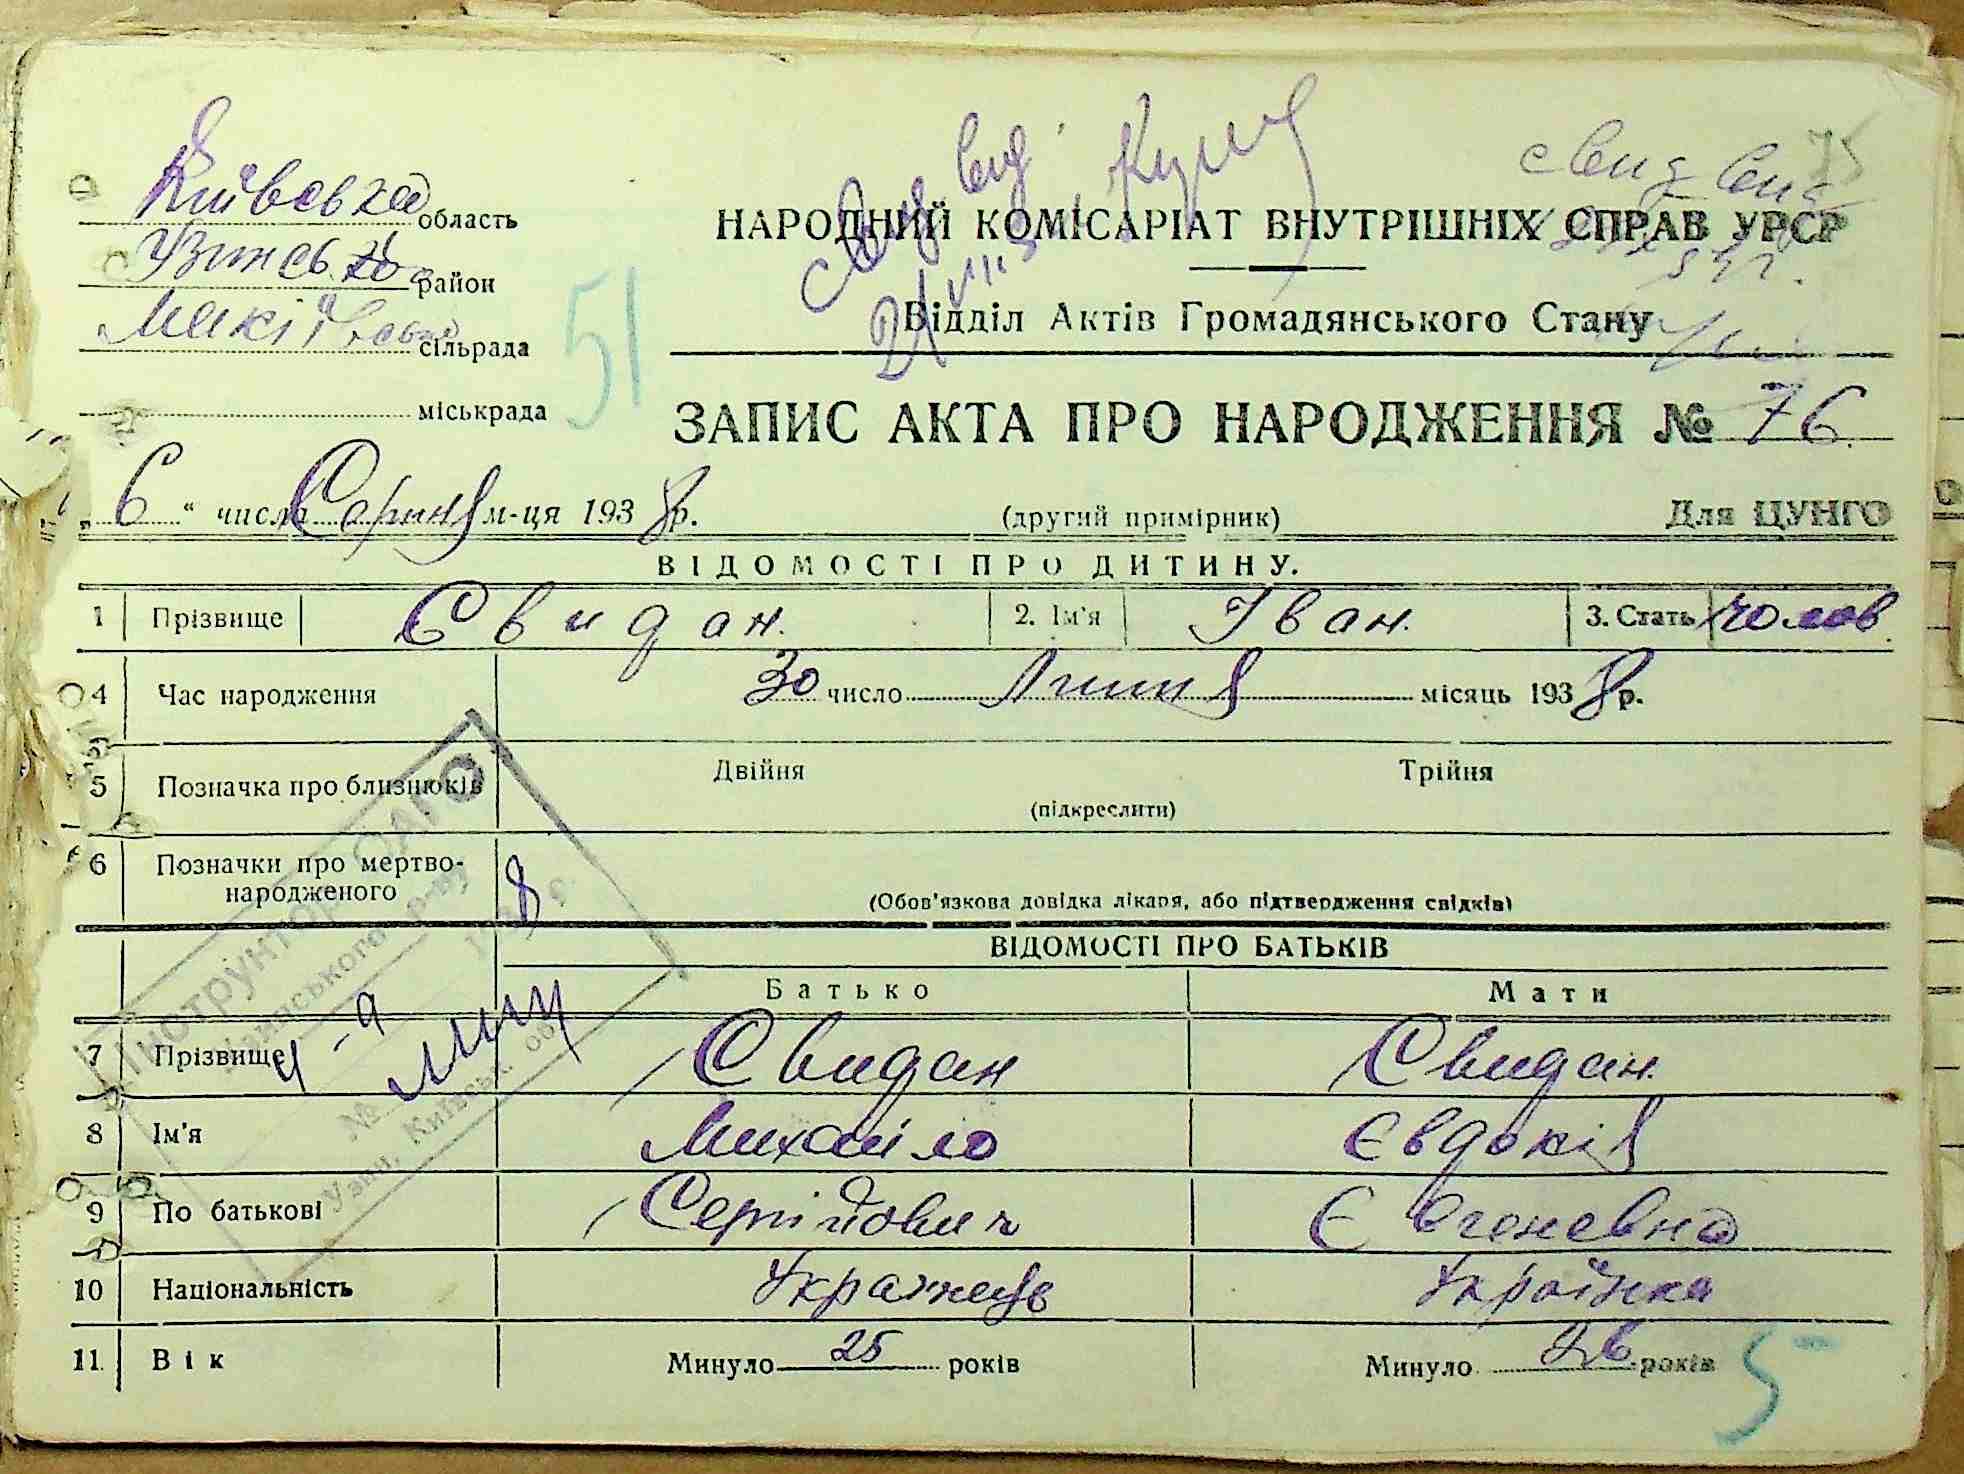 Київська область
Узинський район
Макіївська сільрада
міськрада
51
свид вид
свид вид
75
НАРОДНИЙ КОМІСАРІАТ ВНУТРІШНІХ СПРАВ УРСР
Відділ Актів Громадянського Стану
ЗАПИС АКТА ПРО НАРОДЖЕННЯ № 76.
„6“ числа Серпня м-ця 1938 р. (другий примірник) Для ЦУНГО
ВІДОМОСТІ ПРО ДИТИНУ.
1 Прізвище Свидан. 2. Ім'я Іван. 3. Стать чолов.
4 Час народження 30 число Липня місяць 1938 р.
5 Позначка про близнюків Двійня Трійня
(підкреслити)
6 Позначки про мертво-
народженого (Обов'язкова довідка лікаря, або підтвердження свідків)
ВІДОМОСТІ ПРО БАТЬКІВ
Батько Мати
7 Прізвище Свидан Свидан.
8 Ім'я Михайло Євдокія
9 По батькові Сергійович Євгеневна
10 Національність Українець Українка
11. Вік Минуло 25 років Минуло 26 років
5
Інструктор ОАГС
Узинського р-ну
№ 1938 р.
Узин, Київськ. обл.